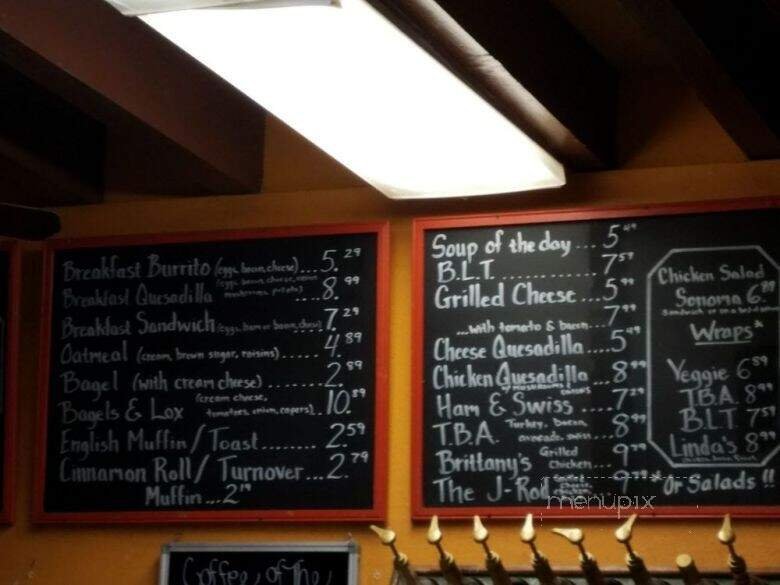 Breakfast Burrito (eggs, bacon, cheese).... 5.29
Breakfast Quesadilla (eggs, bacon, cheese, onion
mushrooms, potato) ....8.99
Breakfast Sandwich (eggs, ham or bacon, chese) 7.29
Oatmeal (cream, brown sugar, raisins) ...... 4.89
Bagel (with cream cheese) ....... 2.89
Bagels & Lox (cream cheese,
tomatoes, onion, capers)... 10.89
English Muffin/Toast........ 2.59
Cinnamon Roll/Turnover... 2.79
Muffin ... 2.19
Coffee of The
Soup of the day ... 5.49
B.L.T. ........... 7.59
Grilled Cheese ... 5.99
...with tomato & bacon... 7.99
Cheese Quesadilla....5.49
Chicken Quesadilla ... 8.99
w/mushrooms & onions
Ham & Swiss .... 7.29
T.B.A. Turkey, bacon,
avocado, swiss.... 8.99
Brittany's Grilled
Chicken... 9.79
The J-Rod 9.79
Chicken Salad
Sonoma 6.89
Sandwich or on a bed of
Wraps*
Veggie 6.59
T.B.A. 8.99
B.L.T 7.59
Linda's 8.99
*Or Salads!!
menupix